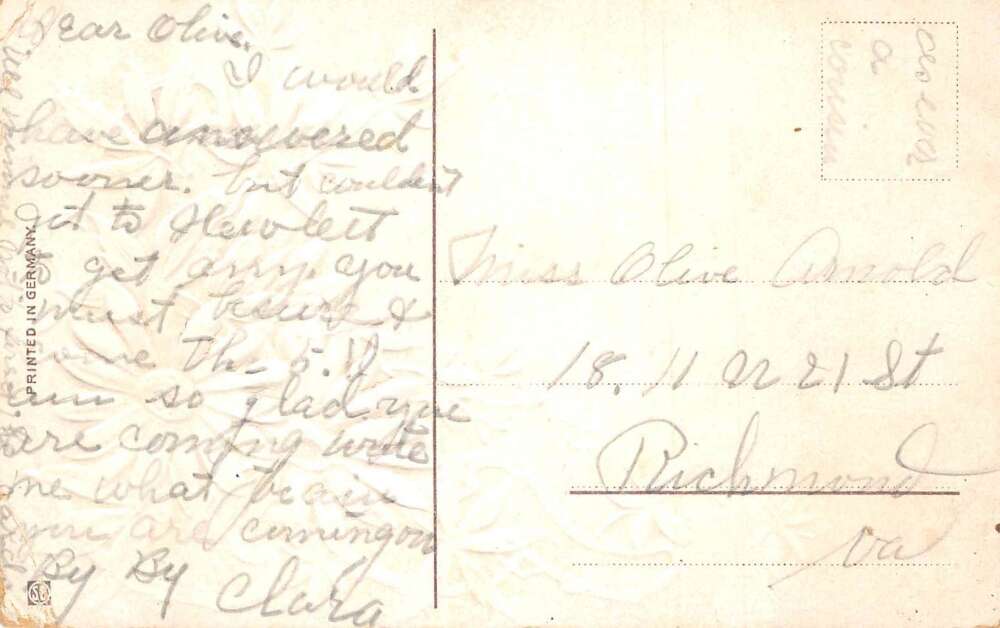 Dear Olive.
I would
have answered
sooner. but couldn't
get to Hewlett
to get any. you
must besure &
come Th- 5. I
am so glad you
are coming write
me what train
you are coming on
By By
Clara
PRINTED IN GERMANY
as ever
a
cousin
Miss Olive Arnold
18. 11 N 21 St
Richmond
Va